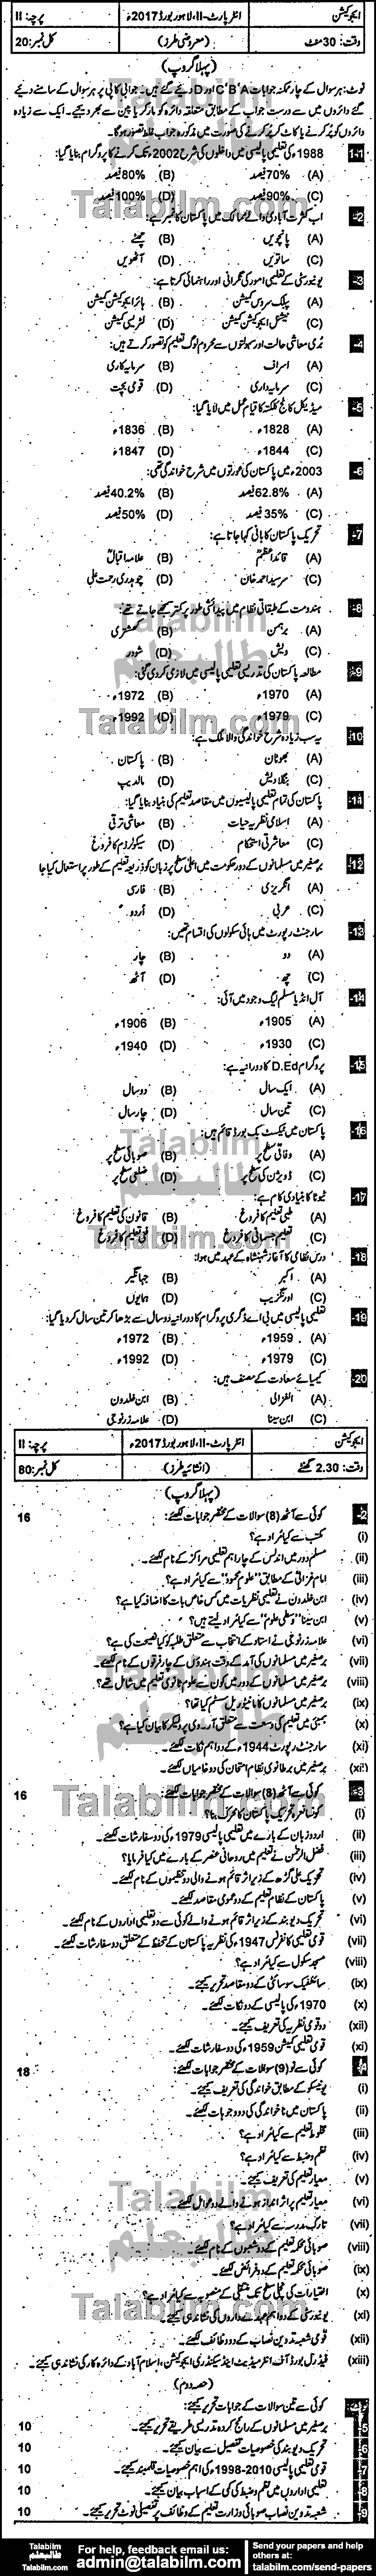 ایجوکیشن انٹرپارٹ-II، لاہور بورڈ 2017ء پرچہ: II
وقت: 30 منٹ (معروضی طرز) کل نمبر: 20
(پہلا گروپ)
نوٹ: ہر سوال کے چار ممکنہ جوابات A'B'C اور D دیئے گئے ہیں۔ جوابی کاپی پر ہر سوال کے سامنے دیئے
گئے دائروں میں سے درست جواب کے مطابق متعلقہ دائرہ کو مارکر یا پین سے بھر دیجیے۔ ایک سے زیادہ
دائروں کو پُر کرنے یا کاٹ کر پُر کرنے کی صورت میں مذکورہ جواب غلط تصور ہوگا۔
1-1 1988ء کی تعلیمی پالیسی میں داخلوں کی شرح 2002ء تک کرنے کا پروگرام بنایا گیا:
(A) 70% فیصد (B) 80% فیصد
(C) 90% فیصد (D) 100% فیصد
-2 اب کثرت آبادی والے ممالک میں پاکستان کا نمبر ہے:
(A) پانچویں (B) چھٹے
(C) ساتویں (D) آٹھویں
-3 یونیورسٹی کے تعلیمی امور کی نگرانی اور راہنمائی کرتا ہے:
(A) پبلک سروس کمیشن (B) ہائر ایجوکیشن کمیشن
(C) نیشنل ایجوکیشن کمیشن (D) لٹریسی کمیشن
-4 بُری معاشی حالت اور سہولتوں سے محروم لوگ تعلیم کو تصور کرتے ہیں:
(A) اسراف (B) سرمایہ کاری
(C) سرمایہ داری (D) قومی بچت
-5 میڈیکل کالج کلکتہ کا قیام عمل میں لایا گیا:
(A) 1828ء (B) 1836ء
(C) 1844ء (D) 1847ء
-6 2003ء میں پاکستان کی عورتوں میں شرح خواندگی تھی:
(A) 62.8% فیصد (B) 40.2% فیصد
(C) 35% فیصد (D) 50% فیصد
-7 تحریک پاکستان کا بانی کہا جاتا ہے:
(A) قائداعظمؒ (B) علامہ اقبالؒ
(C) سرسید احمد خان (D) چوہدری رحمت علی
-8 ہندومت کے طبقاتی نظام میں پیدائشی طور پر کمتر سمجھے جاتے تھے:
(A) برہمن (B) کھشتری
(C) ویش (D) شودر
-9 مطالعہ پاکستان کی تدریس تعلیمی پالیسی میں لازمی کر دی گئی:
(A) 1970ء (B) 1972ء
(C) 1979ء (D) 1992ء
-10 یہ سب زیادہ شرح خواندگی والا ملک ہے:
(A) بھوٹان (B) پاکستان
(C) بنگلا دیش (D) مالدیپ
-11 پاکستان کی تمام تعلیمی پالیسیوں میں مقاصد تعلیم کی بنیاد بنایا گیا:
(A) اسلامی نظریہ حیات (B) معاشی ترقی
(C) معاشرتی استحکام (D) سیکولرازم کا فروغ
-12 برصغیر میں مسلمانوں کے دور حکومت میں اعلیٰ سطح پر زبان کو ذریعہ تعلیم کے طور پر استعمال کیا جاتا
(A) انگریزی (B) فارسی
(C) عربی (D) اُردو
-13 سارجنٹ رپورٹ میں ہائی سکولوں کی اقسام تھیں:
(A) دو (B) چار
(C) چھ (D) آٹھ
-14 آل انڈیا مسلم لیگ وجود میں آئی:
(A) 1905ء (B) 1906ء
(C) 1930ء (D) 1940ء
-15 پروگرام D.Ed کا دورانیہ ہے:
(A) ایک سال (B) دو سال
(C) تین سال (D) چار سال
-16 پاکستان میں ٹیکسٹ بک بورڈ قائم ہیں:
(A) وفاقی سطح پر (B) صوبائی سطح پر
(C) ڈویژن کی سطح پر (D) ضلعی سطح پر
-17 ٹیوٹا کا بنیادی کام ہے:
(A) طبی تعلیم کا فروغ (B) قانون کی تعلیم کا فروغ
(C) تعلیم جسمانی کا فروغ (D) فنی تعلیم کا فروغ
-18 درس نظامی کا آغاز شہنشاہ کے عہد میں ہوا:
(A) اکبر (B) جہانگیر
(C) اورنگزیب (D) ہمایوں
-19 تعلیمی پالیسی میں بی اے ڈگری پروگرام کا دورانیہ دو سال سے بڑھا کر تین سال کر دیا گیا:
(A) 1959ء (B) 1972ء
(C) 1979ء (D) 1992ء
-20 کیمیائے سعادت کے مصنف ہیں:
(A) الغزالی (B) ابن خلدون
(C) ابن سینا (D) علامہ زرنوجی
ایجوکیشن انٹرپارٹ-II، لاہور بورڈ 2017ء پرچہ: II
وقت: 2.30 گھنٹے (انشائیہ طرز) کل نمبر: 80
(پہلا گروپ)
-2 کوئی سے آٹھ (8) سوالات کے مختصر جوابات لکھئے: 16
(i) مکتب سے کیا مراد ہے؟
(ii) مسلم دور میں اندلس کے چار اہم تعلیمی مراکز کے نام لکھئے۔
(iii) امام غزالی کے مطابق "علوم محمود" سے کیا مراد ہے؟
(iv) ابن خلدون نے تعلیمی نظریات میں کس خاص بات کا اضافہ کیا ہے؟
(v) ابن سینا "وسطی علوم" سے کیا مراد لیتے ہیں؟
(vi) علامہ زرنوجی نے استاد کے انتخاب سے متعلق طلبہ کو کیا نصیحت کی ہے؟
(vii) برصغیر میں مسلمانوں کی آمد کے وقت ہندوؤں کے چار فرقوں کے نام لکھئے۔
(viii) برصغیر میں مسلمانوں کے دور میں کون سے علوم ثانوی تعلیم میں شامل تھے؟
(ix) برصغیر میں مسلمانوں کا مانیٹوریل سسٹم کیا تھا؟
(x) بمبئی میں تعلیم کی وسعت سے متعلق آر۔وی پرلیکر کا بیان کیا ہے؟
(xi) سارجنٹ رپورٹ 1944ء کے دو اہم نکات لکھئے۔
(xii) برصغیر میں برطانوی نظام امتحان کی دو خامیاں لکھئے۔
-3 کوئی سے آٹھ (8) سوالات کے مختصر جوابات لکھئے: 16
(i) کونسا نعرہ تحریک پاکستان کا محرک بنا؟
(ii) اردو زبان کے بارے میں تعلیمی پالیسی 1979ء کی دو سفارشات لکھئے۔
(iii) فضل الرحمٰن نے تعلیم میں روحانی عنصر کے بارے میں کیا فرمایا؟
(iv) تحریک علی گڑھ کے زیر اثر قائم ہونے والی دو تنظیموں کے نام لکھئے۔
(v) پاکستان کے نظام تعلیم کے دو عمومی مقاصد لکھئے۔
(vi) تحریک دیوبند کے زیر اثر قائم ہونے والے کوئی سے دو تعلیمی اداروں کے نام لکھئے۔
(vii) قومی تعلیمی کانفرنس 1947ء کی نظریہ پاکستان کے تحفظ کے متعلق دو سفارشات لکھئے۔
(viii) مسجد سکول سے کیا مراد ہے؟
(ix) سائنٹیفک سوسائٹی کے دو مقاصد تحریر کیجئے۔
(x) 1970ء کی پالیسی کے دو نکات لکھئے۔
(xii) دو قومی نظریہ کی تعریف کیجئے۔
(xi) قومی تعلیمی کمیشن 1959ء کی دو سفارشات لکھئے۔
-4 کوئی سے نو (9) سوالات کے مختصر جوابات لکھئے: 18
(i) یونیسکو کے مطابق خواندگی کی تعریف کیجئے۔
(ii) پاکستان میں ناخواندگی کی دو وجوہات لکھئے۔
(iii) مخلوط تعلیم سے کیا مراد ہے؟
(iv) نظم و ضبط سے کیا مراد ہے؟
(v) معیار تعلیم کی تعریف کیجئے۔
(vi) معیار تعلیم پر اثر انداز ہونے والے دو عوامل لکھئے۔
(vii) تارک مدرسہ سے کیا مراد ہے؟
(viii) صوبائی محکمہ تعلیم کے دو شعبوں کے نام لکھئے۔
(ix) صوبائی محکمہ تعلیم کے دو فرائض لکھئے۔
(x) اختیارات کی نچلی سطح تک منتقلی کے منصوبہ سے کیا مراد ہے؟
(xi) یونیورسٹی کے دو اہم عہدے داروں کی نشاندہی کیجئے۔
(xii) قومی شعبہ تدوین نصاب کے دو وظائف لکھئے۔
(xiii) فیڈرل بورڈ آف انٹرمیڈیٹ اینڈ سیکنڈری ایجوکیشن، اسلام آباد کے دائرہ کار کی نشاندہی کیجئے۔
(حصہ دوم)
نوٹ: کوئی سے تین سوالات کے جوابات تحریر کیجئے:
-5 برصغیر میں مسلمانوں کے رائج کردہ تدریسی طریقے تحریر کیجئے۔ 10
-6 تحریک دیوبند کی خصوصیات تفصیل سے بیان کیجئے۔ 10
-7 قومی تعلیمی پالیسی 1998-2010 کی اہم خصوصیات قلمبند کیجئے۔ 10
-8 تعلیمی اداروں میں نظم و ضبط کی کمی کے اسباب بیان کیجئے۔ 10
-9 شعبہ تدوین نصاب صوبائی وزارت تعلیم کے وظائف پر تفصیلی نوٹ تحریر کیجئے۔ 10
Talabilm.com
طالبعلم
Talabilm
طالبعلم
.com
For help, feedback email us:
admin@talabilm.com
Send your papers and help
others at:
talabilm.com/send-papers